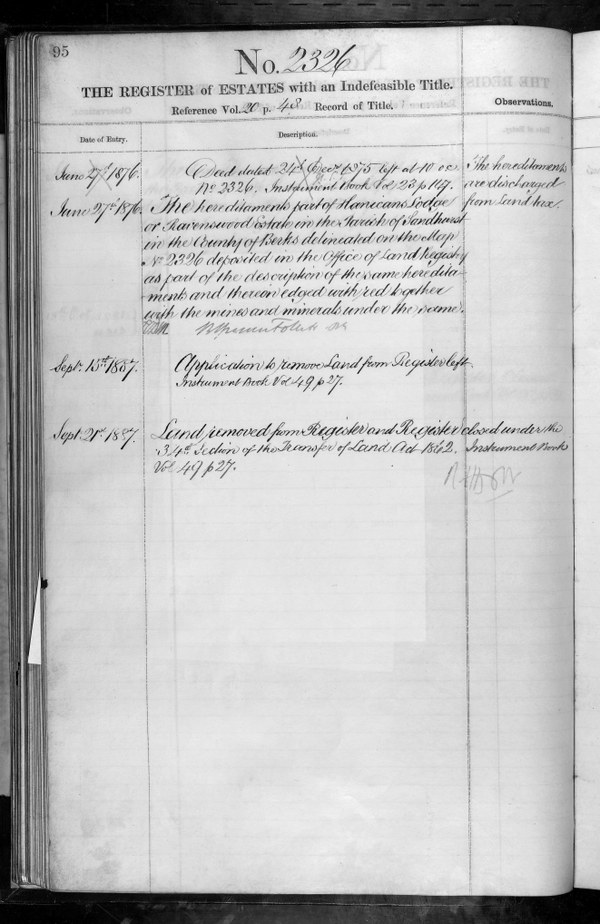 95
No. 2326
THE REGISTER of ESTATES with an Indefeasible Title.
Reference Vol. 20 p. 48 Record of Title.
Observations.
Date of Entry.
Description.
June 27th 1876. Deed dated 24th Decr. 1875 left at 10 o.c. The hereditaments
No. 2326. Instrument Book Vol 23 p 147. are discharged
June 27th 1876. The hereditaments part of Hanicans Lodge from Land tax.
or Ravenswood Estate in the Parish of Sandhurst
in the County of Berks delineated on the Map
No 2326 deposited in the Office of Land Registry
as part of the description of the same heredita-
ments and therein edged with red together
with the mines and minerals under the same.
Sept. 15th 1887. Application to remove Land from Register left
Instrument Book Vol 49 p 27.
Sept 21st 1887. Land removed from Register and Register closed under the
34th Section of the Transfer of Land Act 1862. Instrument Book
Vol 49 p 27.